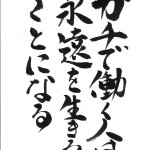 ガチで働く人は
永遠を生きる
ことになる